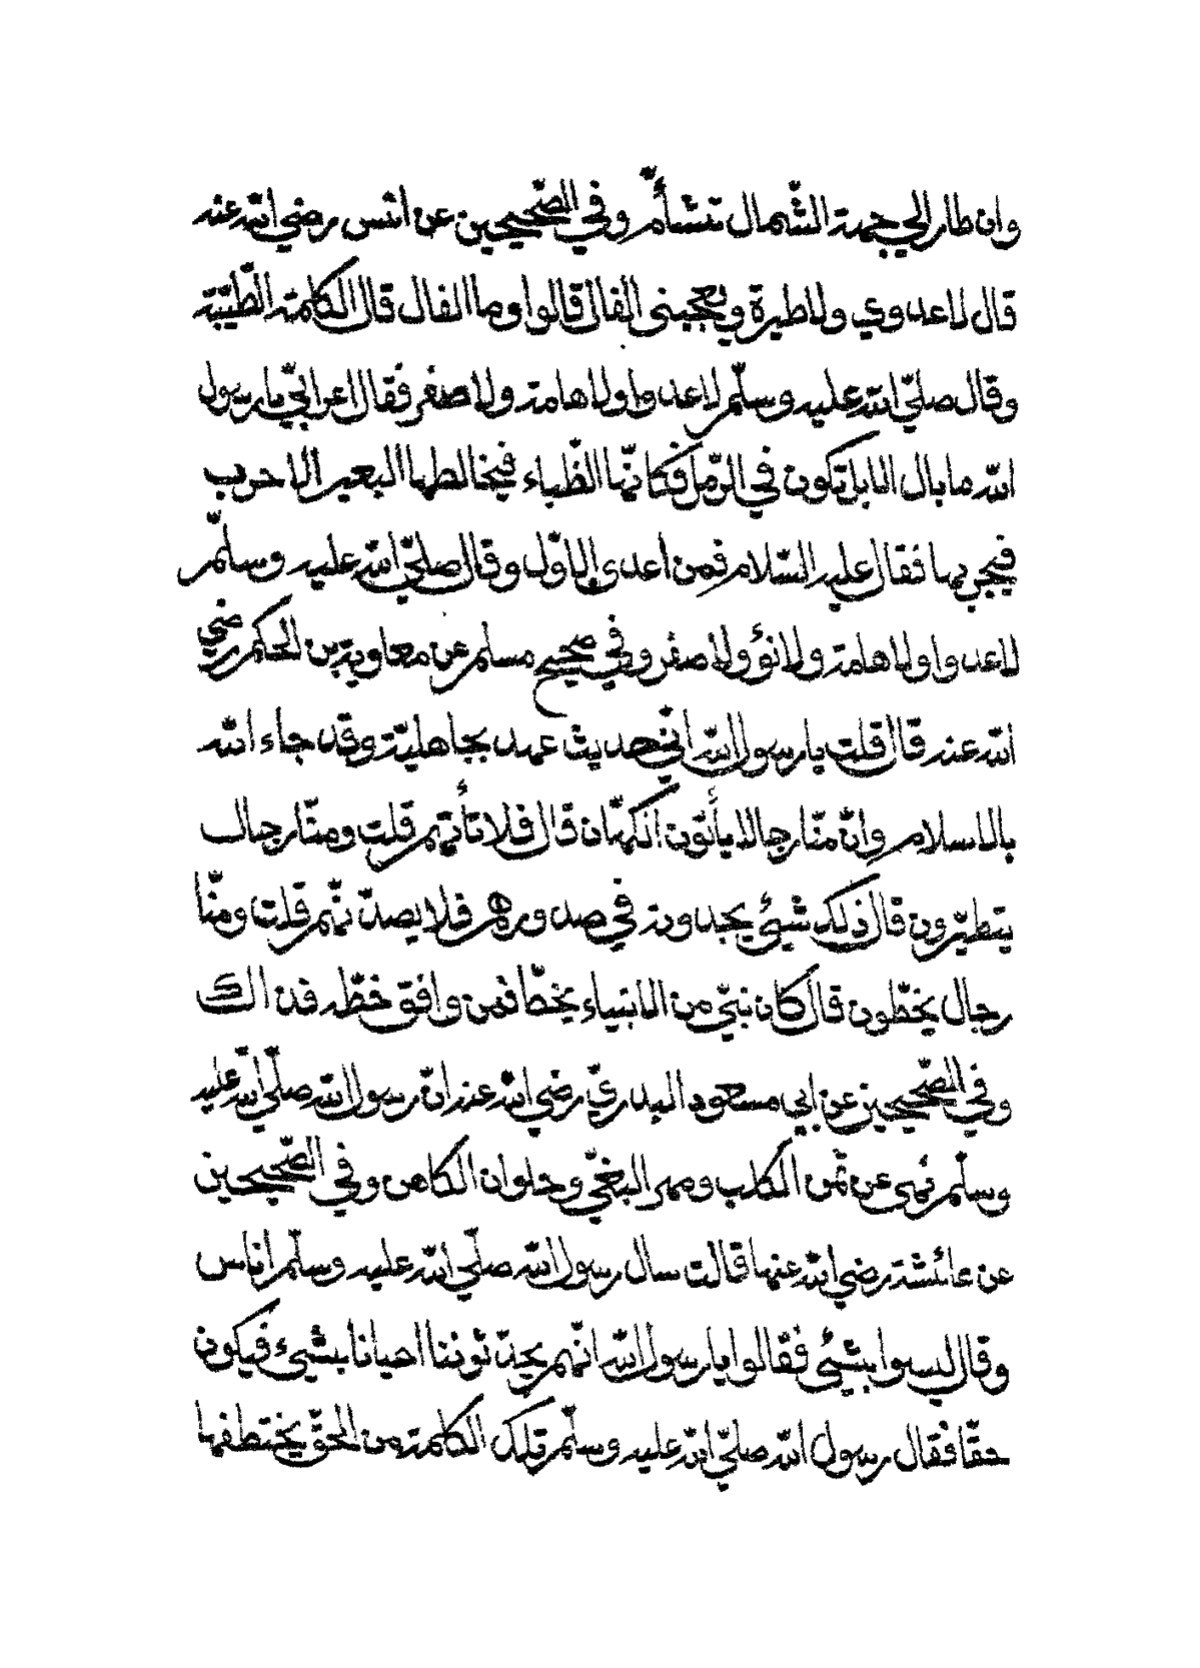 وان طار الي جهة الشّمال تشأّم وفي الصّحيحين عن انس رضي الله عنه
قال لا عدوي ولا طيرة ويعجبني الفال قالوا وما الفال قال الكلمة الطّيّبة
وقال صلّي الله عليه وسلّم لا عدوا ولا هامة ولا صفر فقال اعرابيّ يا رسول
الله ما بال الابل تكون في الرّمل فكانّها الظّباء فيخالطها البعير الاجرب
فيجربها فقال عليه السّلام فمن اعدي الاوّل وقال صلّي الله عليه وسلّم
لا عدوا ولا هامة ولا نؤ ولا صفر وفي صحيح مسلم عن معاوية بن الحكم رضي
الله عنه قال قلت يا رسول الله انّي حديث عهد بجاهليّة وقد جاء الله
بالاسلام وانّ منّا رجالا يأتون الكهّان قال فلا تأتهم قلت ومنّا رجال
يتطيّرون قال ذلك شيئ يجدونه في صدورهم فلا يصدّنّهم قلت ومنّا
رجال يخطّون قال كان نبيّ من الانبياء يخطّ فمن وافق خطّه فذالك
وفي الصّحيحين عن ابي مسعود البدريّ رضي الله عنه انّ رسول الله صلّي الله عليه
وسلّم نهي عن ثمن الكلب ومهر البغيّ وحلوان الكاهن وفي الصّحيحين
عن عائشة رضي الله عنها قالت سال رسول الله صلّي الله عليه وسلّم اناس
وقال ليسوا بشيئ فقالوا يا رسول الله انّهم يحدّثوننا احيانا بشيئ فيكون
حقّا فقال رسول الله صلّي الله عليه وسلّم تلك الكلمة من الحقّ يختطفها